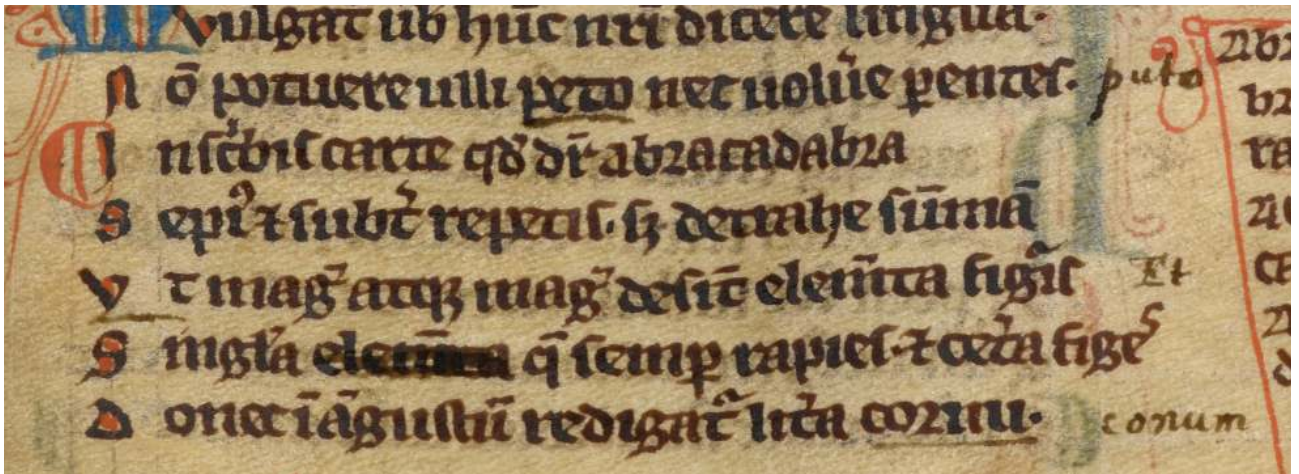 Vulgat᷑ ub̄ hūc nr̄i dicere lingua.
nō potuere ulli peto nec uolūe ꝑentes. puto
Inscͥbis carte qd̛ dr̄ abracadabra
Sepiꝰ ⁊ subt͛ repetis. sꝫ detrahe sūmā
Vt mag͛ atqꝫ mag͛ desīt elem̄ta fig͛is Et
Singl̓a elem̄ta q̄ semꝑ rapies ⁊ cet͛a figēs
Donec ī āgustū redigat᷑ lit͛a cornu. conum
abr
br
ra
ca